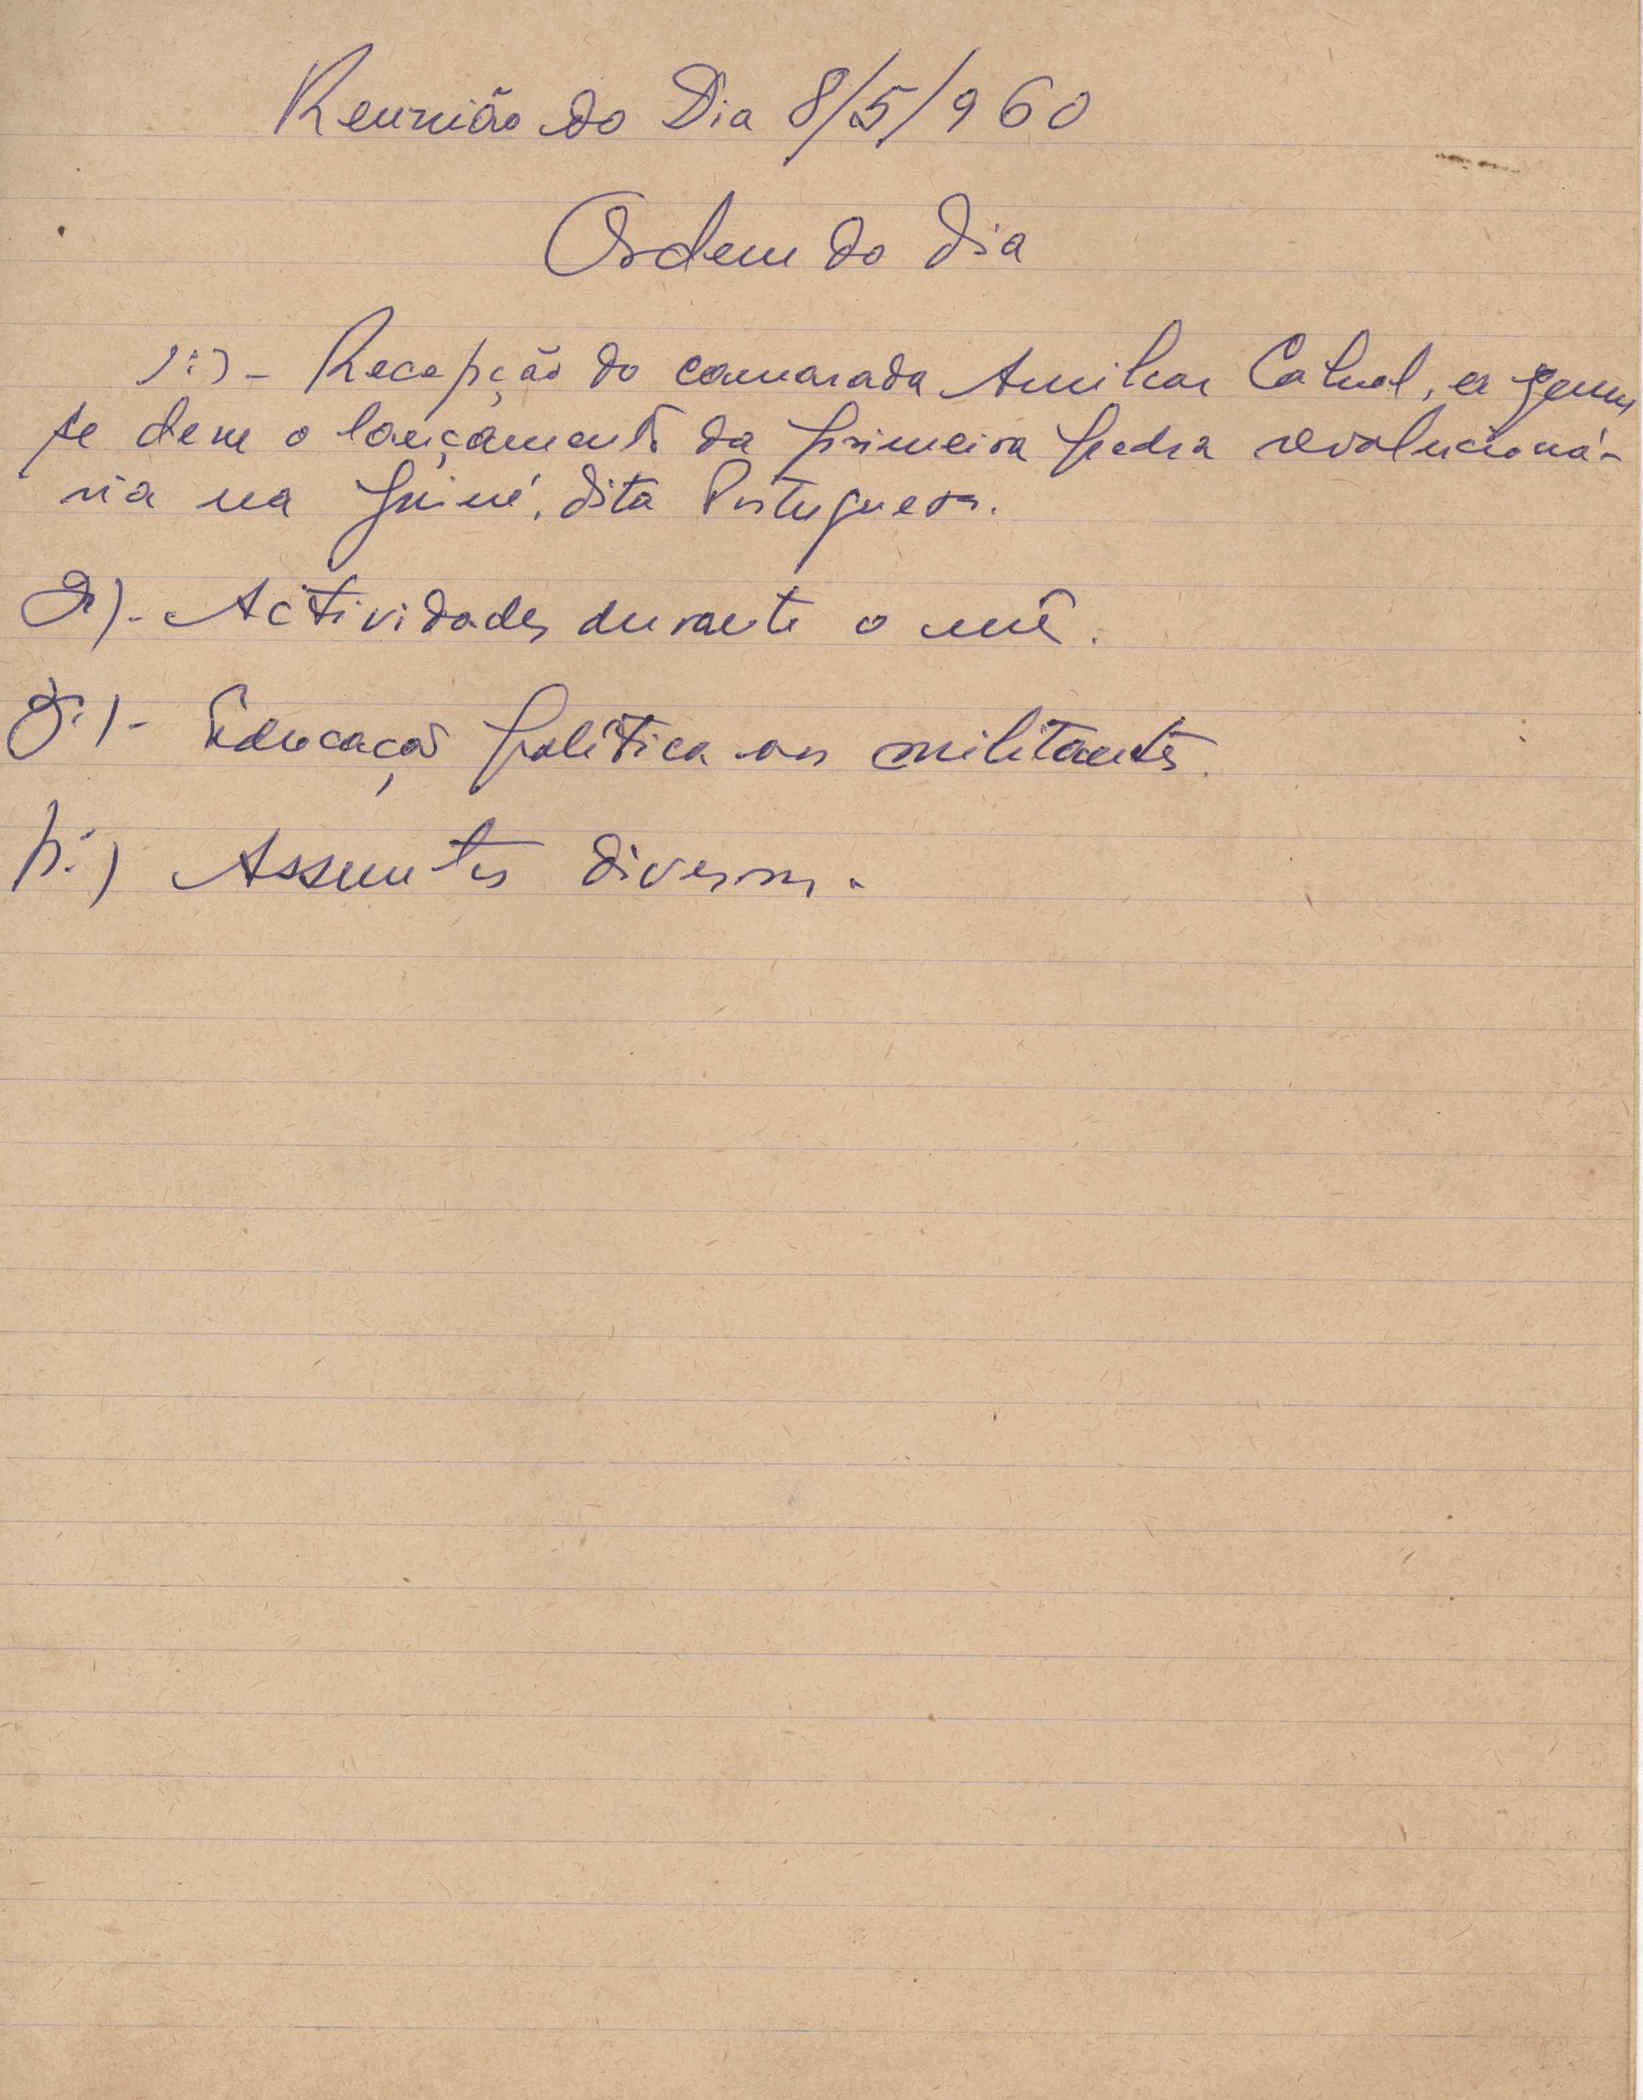 Reunião do Dia 8/5/960
Ordem do dia
1º) - Recepção do camarada Amilcar Cabral, a quem
se deve o lançamento da primeira pedra revolucioná-
ria na Guiné, dita Portuguesa.
2º) - Actividades durante o mê.
3º) - Educação política aos militantes.
4º) Assuntos diversos.